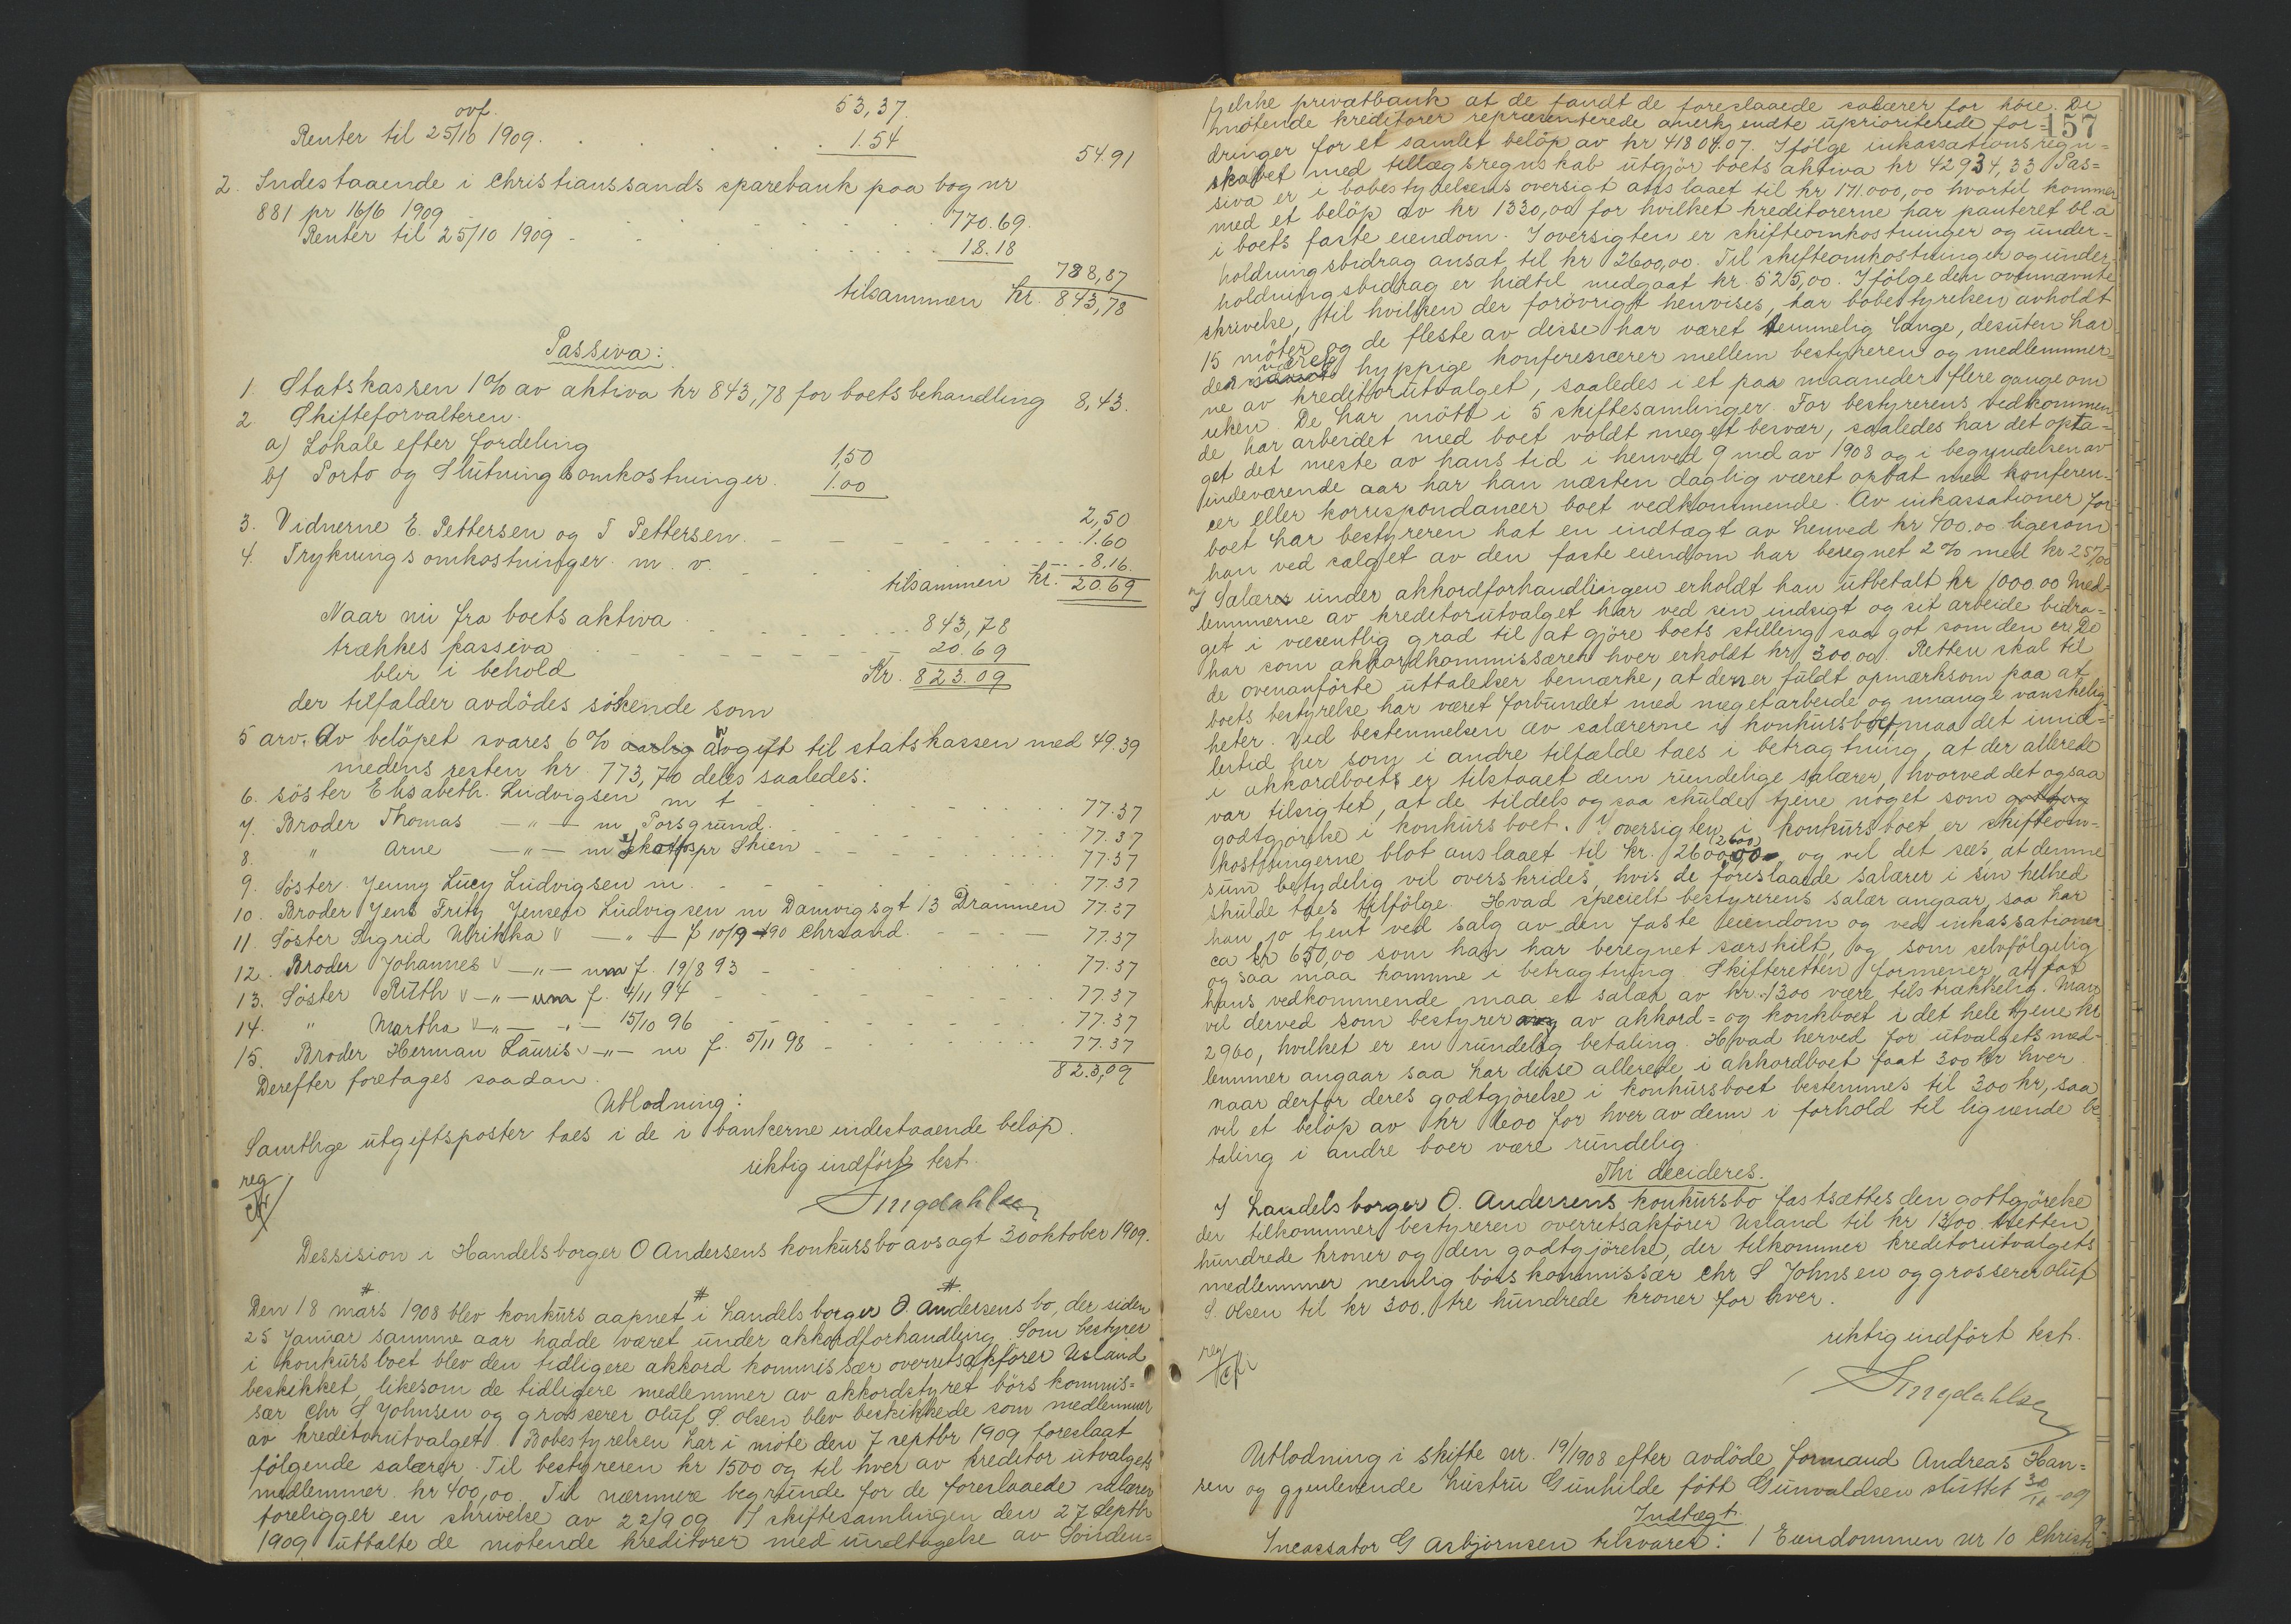 ovf. 53,37.
Renter til 25/10 1909. 1.54
54.91
2. Indestaaende i Christianssands sparebank paa bog nr
881 pr 16/6 1909 770.69.
Renter til 25/10 1909 18.18
788,87
tilsammen Kr. 843,78
Passiva:
1. Statskassen 1% av aktiva kr 843,78 for boets behandling 8,43.
2 Skifteforvalteren.
a) Lokale efter fordeling 1,50
b) Porto og Slutningsomkostninger. 1.00
2,50
3. Vidnerne E. Pettersen og T Pettersen. 1.60
4. Trykningsomkostninger m. v. 8.16.
tilsammen Kr. 20.69
Naar nu fra boets aktiva 843,78
trækkes passiva 20.69
blir i behold Kr. 823.09
der tilfalder avdödes söskende som
5 arv. Av belöpet svares 6% aarlig avgift til statskassen med 49.39
medens resten kr. 773,70 deles saaledes:
6. söster Elisabeth Ludvigsen m t 77.37
7. Broder Thomas —"— m Porsgrund. 77.37
8. " Arne —"— m pr Skien 77.37
9. Söster Jenny Lucy Ludvigsen m. 77.37
10. Broder Jens Fritz Jensen Ludvigsen m Damvigsgt 13 Drammen 77.37
11. Söster Sigrid Ulrikka v —"— f 10/9 -90 Chrsand. 77.37
12. Broder Johannes v —"— um f. 19/8 93 77.37
13. Söster Ruth v —"— um f. 4/11 94 77.37
14. " Martha v —"— —"— 15/10 96 77.37
15. Broder Herman Lauris v —"— m f. 5/11 98 77.37
823,09
Derefter foretages saadan
Utlodning:
Samtlige utgiftsposter taes i de i bankerne indestaaende belöp.
riktig indfört test.
reg
Singdahlsen
Dessision i Handelsborger O Andersens konkursbo avsagt 30 oktober 1909.
Den 18 mars 1908 blev konkurs aapnet i handelsborger O. Andersens bo, der siden
25 Januar samme aar hadde været under akkordforhandling. Som bestyrer
i konkursboet blev den tidligere akkord kommissær overretsakfører Usland
beskikket, likesom de tidligere medlemmer av akkordstyret börs kommis=
sær Chr S Johnsen og grosserer Oluf S. Olsen blev beskikkede som medlemmer
av kreditorutvalget. Bobestyrelsen har i möte den 7 septbr 1909 foreslaat
fölgende salærer. Til bestyreren kr 1500 og til hver av kreditor utvalgets
medlemmer kr 400,00. Til nærmere begrunde for de foreslaaede salærer
foreligger en skrivelse av 22/9 09. I skiftesamlingen den 27 Septbr
1909 uttalte de mötende kreditorer med undtagelse av Sönden=
157
fjelske privatbank at de fandt de foreslaaede salærer for höie. De
mötende kreditorer repræsenterede anerkjendte uprioriterede for=
dringer for et samlet belöp av kr 41804.07. Ifölge inkassationsregn=
skabet med tillægsregnskab utgjör boets aktiva kr 42934,33 Pas=
siva er i bobestyrelsens oversigt anslaaet til kr 171.000,00 hvortil kommer
med et belöp av kr 1330,00 for hvilket kreditorerne har panteret bl.a
i boets faste eiendom. I oversigten er skifteomkostninger og under=
holdningsbidrag ansat til kr 2600,00. Til skifteomkostninger og under=
holdningsbidrag er hidtil medgaat kr. 525,00. Ifölge den ovennævnte
skrivelse, til hvilken der forövrigt henvises, har bobestyrelsen avholdt
15 möter og de fleste av disse har været temmelig lange, desuten har
der været hyppige konferencer mellem bestyreren og medlemmer=
ne av kreditorutvalget, saaledes i et par maaneder flere gange om
uken. De har mött i 5 skiftesamlinger. For bestyrerens vedkommen=
de har arbeidet med boet voldt meget besvær, saaledes har det opta=
get det meste av hans tid i henved 9 md av 1908 og i begyndelsen av
indeværende aar har han næsten daglig været optat med konferen=
cer eller korrespondancer boet vedkommende. Av inkassationer for
boet har bestyreren hat en indtægt av henved kr 400.00 ligesom
han ved salget av den faste eiendom har beregnet 2% med kr 257,00
I Salærer under akkordforhandlingen erholdt han utbetalt kr 1000.00 Med=
lemmerne av kreditorutvalget har ved sin indsigt og sit arbeide bidra=
get i væsentlig grad til at gjöre boets stilling saa got som den er. De
har som akkordkommissærer hver erholdt kr 300,00. Retten skal til
de ovenanförte uttalelser bemærke, at den er fuldt opmærksom paa at
boets bestyrelse har været forbundet med meget arbeide og mange vanskelig=
heter. Ved bestemmelsen av salærerne i konkursboet, maa det imid=
lertid her som i andre tilfælde taes i betragtning, at der allerede
i akkordboets er tilstaaet dem rundelige salærer, hvorved det ogsaa
var tilsigtet, at de tildels ogsaa skulde tjene noget som
godtgjörelse i konkursboet. I oversigten i konkursboet er skifteom=
kostningerne blot anslaaet til kr. 2600,00 (2600) og vil det sees at denne
sum betydelig vil overskrides, hvis de foreslaaede salærer i sin helhed
skulde taes tilfölge. Hvad specielt bestyrerens salær angaar, saa har
han jo tjent ved salg av den faste eiendom og ved inkassationer
ca kr 650,00 som han har beregnet særskilt, og som selvfölgelig
ogsaa maa komme i betragtning. Skifteretten formener, at for
hans vedkommende maa et salær av kr. 1300 være tilstrækkelig. Man
vil derved som bestyrer av akkord= og konkboet i det hele tjene kr
2960, hvilket er en rundelig betaling. Hvad herved for utvalgets med-
lemmer angaar saa har disse allerede i akkordboet faat 300 kr hver
naar derfor deres godtgjörelse i konkursboet bestemmes til 300 kr, saa
vil et belöp av kr 600 for hver av dem i forhold til lignende be=
taling i andre boer være rundelig.
Thi decideres.
I handelsborger O. Andersens konkursbo fastsættes den gottgjörelse
der tilkommer bestyreren overretsakförer Usland til kr 1300. tretten
hundrede kroner og den godtgjörelse, der tilkommer kreditorutvalgets
medlemmer nemlig börskommissær Chr S Johnsen og grosserer Oluf
S. Olsen til kr 300. tre hundrede kroner for hver.
riktig indfört test.
reg
Singdahlsen
Utlodning i skifte nr. 19/1908 efter avdöde formand Andreas Han=
sen og gjenlevende hustru Gunhilde fött Gunvaldsen sluttet 30/10 -09
Indtægt.
Incassator G Asbjörnsen tilsvarer: 1 Eiendommen nr 10 Christi